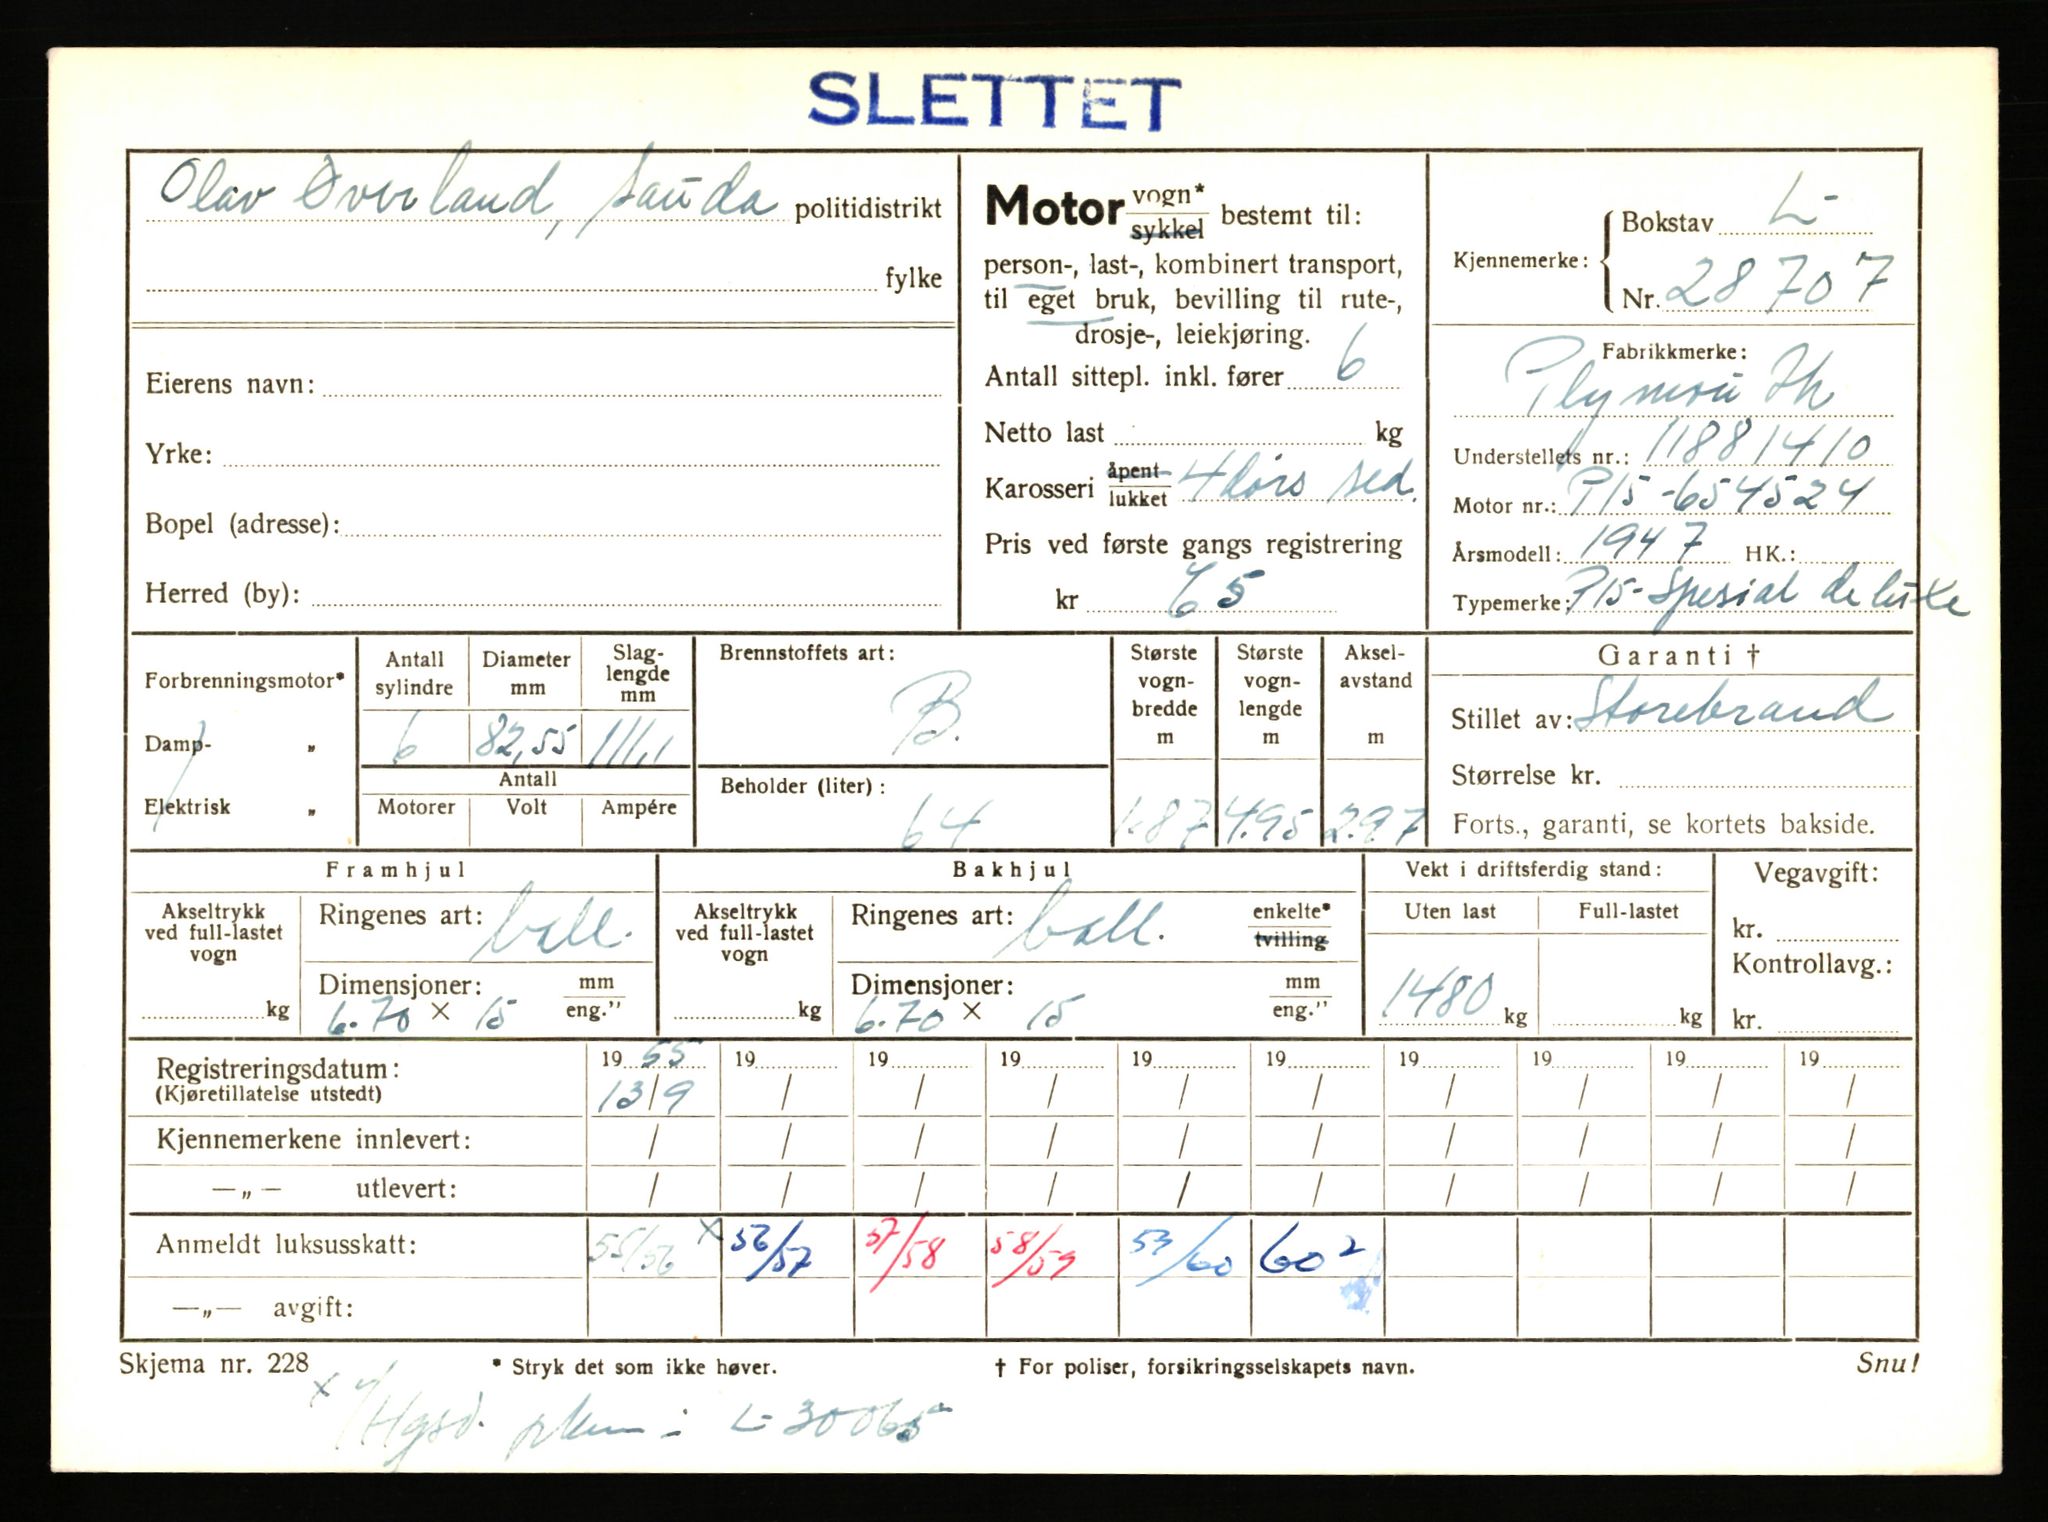 SLETTET
Olav Øverland, Sauda politidistrikt
fylke
Eierens navn:
Yrke:
Bopel (adresse):
Herred (by):
Motor vogn* sykkel bestemt til:
person-, last-, kombinert transport,
til eget bruk, bevilling til rute-,
drosje-, leiekjøring.
Antall sittepl. inkl. fører 6
Netto last kg
Karosseri åpent lukket 4 dørs sed.
Pris ved første gangs registrering
kr
Kjennemerke: Bokstav L-
Nr. 28707
Fabrikkmerke:
Plymouth
Understellets nr.: 11881410
Motor nr.: P15-654524
Årsmodell: 1947 HK.:
Typemerke: P15-Spesial de luxe
Forbrenningsmotor*
Damp- „
Elektrisk „
Antall sylindre 6
Diameter mm 82,55
Slag-lengde mm 111,1
Antall
Motorer Volt Ampére
Brennstoffets art:
B.
Beholder (liter):
64
Største vogn-bredde m 1.87
Største vogn-lengde m 4.95
Aksel-avstand m 2.97
Garanti †
Stillet av: Storebrand
Størrelse kr.
Forts., garanti, se kortets bakside.
Framhjul
Akseltrykk ved full-lastet vogn
kg
Ringenes art: ball.
Dimensjoner: mm
6.70 × 15 eng."
Bakhjul
Akseltrykk ved full-lastet vogn
kg
Ringenes art: ball. enkelte* tvilling
Dimensjoner: mm
6.70 × 15 eng."
Vekt i driftsferdig stand:
Uten last Full-lastet
1480 kg kg
Vegavgift:
kr.
Kontrollavg.:
kr.
Registreringsdatum: 19 55 19 19 19 19 19 19 19 19 19
(Kjøretillatelse utstedt) 13/9 / / / / / / / / /
Kjennemerkene innlevert: / / / / / / / / / /
—„— utlevert: / / / / / / / / / /
Anmeldt luksusskatt: 55/56 × 56/57 57/58 58/59 59/60 60 2
—„— avgift:
Skjema nr. 228 * Stryk det som ikke høver. † For poliser, forsikringsselskapets navn. Snu!
× L-30065